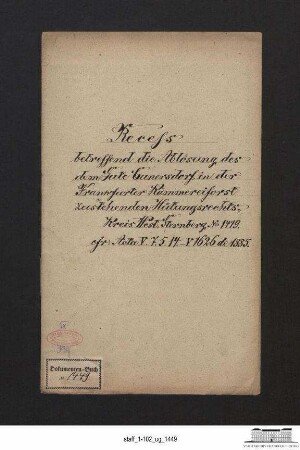 Recess
betreffend die Ablösung des
dem Gute Cunersdorf in der
Frankfurter Kämmereiforst
zustehenden Hütungsrechts.
Kreis West Sternberg No 1449.
cfr Acta V. 7. 5. 14 V 1626 de 1885.
Dokumenten-Buch
No. 1449
staff_1-102_ug_1449